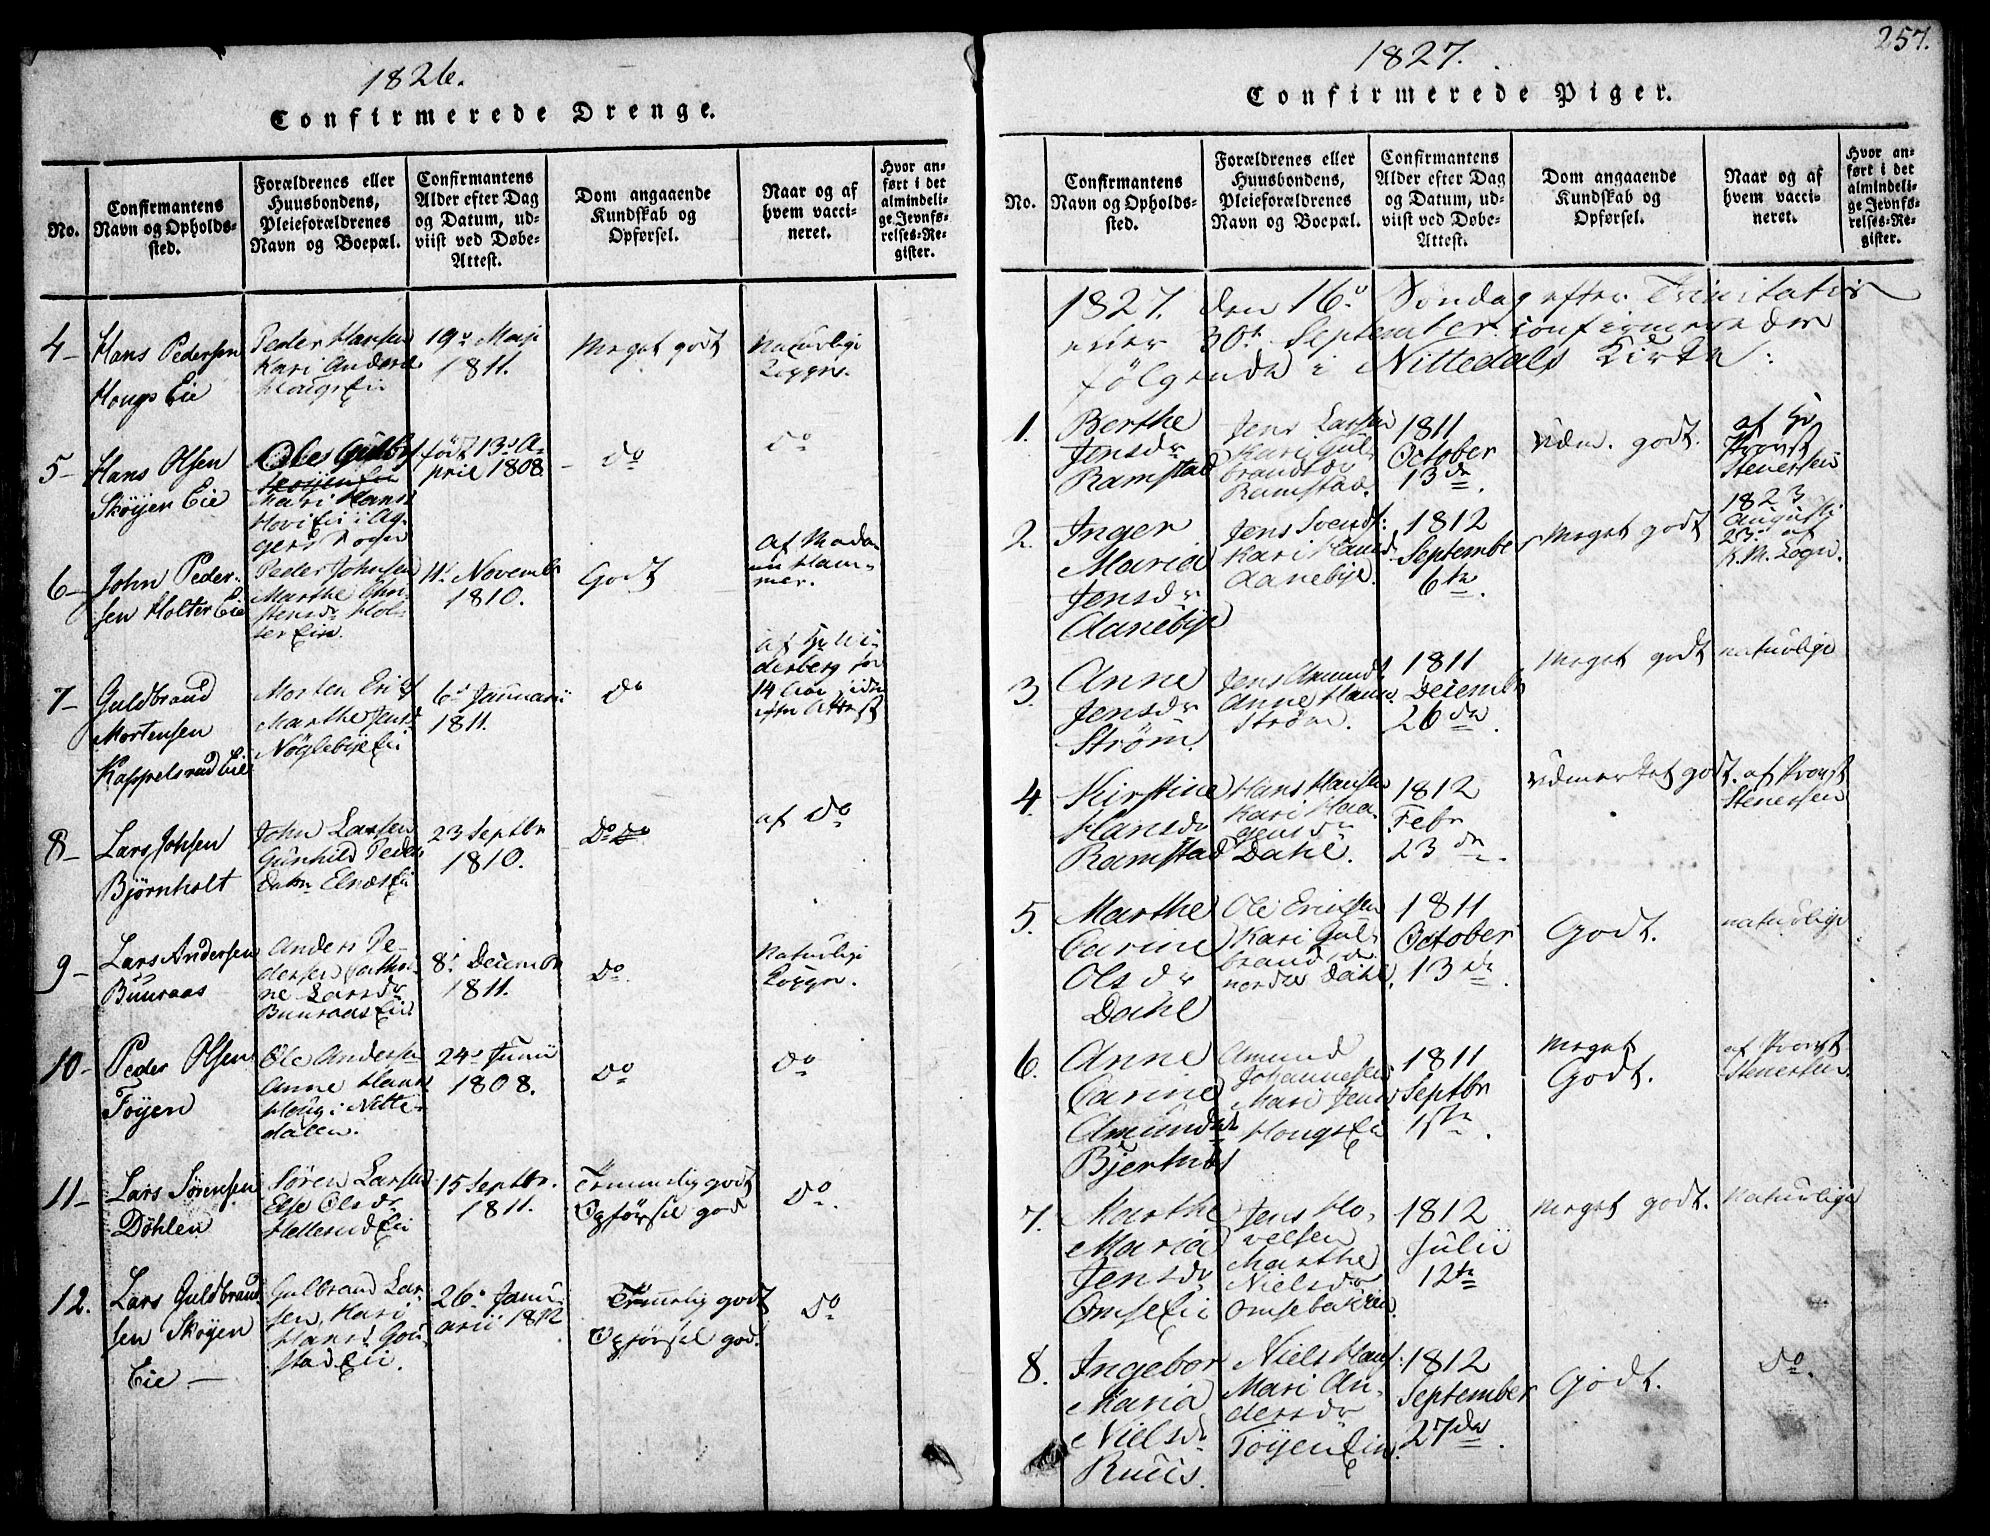 1826.
Confirmerede Drenge.
No.
Confirmantens
Navn og Opholds-
sted.
Forældrenes eller
Huusbondens,
Pleieforældrenes
Navn og Boepæl.
Confirmantens
Alder efter Dag
og Datum, ud-
viist ved Døbe-
Attest.
Dom angaaende
Kundskab og
Opførsel.
Naar og af
hvem vacci-
neret.
Hvor an-
ført i det
almindeli-
ge Jevnfø-
relses-Re-
gister.
4- Hans Pedersen
Hougs Eie
Peder Hansen
Kari Andersd
Hougs Eie
19de Maji
1811.
Meget godt
Naturlige
Kopper.
5- Hans Olsen
Skøyen Eie
Oles
Skøyen Eie
Mari Hans
Hovi Eie i Ag-
gers Sogn
født 13de A-
pril 1808.
do
do
6- John Peder-
sen Holter Eie
Peder Johnsen
Marthe Chri-
stensdr Hol-
ter Eie.
11te Novembr
1810.
Godt
af Mada-
m Ham-
mer.
7- Guldbrand
Mortensen
Kappelsrud Eie
Morten Erics
Marthe Jensd
Nøglebye Eie
6de Januarii
1811.
do
af Hr
derberg for
14 Aar siden
efter Attest
8- Lars Johsen
Bjørnholt
John Larsen
Gunhild Peders
datr Elnæs Eie
23 Septbr
1810.
Do do
af do
9- Lars Andersen
Buuraas
Anders Pe-
dersen Cathri-
ne Larsdr
Buuraas Eie
8de Decembr
1811.
Do.
Naturlige
Kopper.
10- Peder Olsen
Tøyen
Ole Anderse
Anne Hans
Houg i Nitte-
dalen.
24de Junii
1808.
Do
Do
11- Lars Sørensen
Døhlen
Søren Larsen
Else Olsdr
Hellerud Eie
15 Septbr.
1811.
Temmelig godt
Opførsel god
Do.
12. Lars Guldbrand
sen Skøyen
Eie -
Gulbrand Lar-
sen, Mari
Hansd Gou-
stad Eie.
26de Janu-
arii 1812
Temmelig godt
Opførsel god.
Do
257.
1827.
Confirmerede Piger.
No.
Confirmantens
Navn og Opholds-
sted.
Forældrenes eller
Huusbondens,
Pleieforældrenes
Navn og Boepæl.
Confirmantens
Alder efter Dag
og Datum, ud-
viist ved Døbe-
Attest.
Dom angaaende
Kundskab og
Opførsel.
Naar og af
hvem vacci-
neret.
Hvor an-
ført i det
almindeli-
ge Jevnfø-
relses-Re-
gister.
1827. den 16de Søndag efter Trinitatis
eller 30te September confirmerede
følgende i Nittedals Kirke:
1. Berthe
Jensdr
Ramstad
Jens Larsen
Kari Gul-
brandsdr
Ramstad.
1811
October
13de.
Udm. godt.
af Hr
Provst
Stenersen
2. Inger
Maria
Jensdr
Aanebye
Jens Svends:
Kari Hansd
Aanebye.
1812
September
6te.
Meget godt
1823
Augusti
23 af
K. M. Logn.
3. Anne
Jensdr
Strøm.
Jens Amund
Anne Hans.
Strøm.
1811
Decembr
26de.
Meget godt
naturlige
4. Kirstine
Hansdr
Ramstad
Hans Hansen
Kari Haa-
gensdr
Dahl.
1812
Febr
23de.
Udmerket godt.
af Provst
Stenersen
5. Marthe
Carine
Olsdr
Dahl
Ole Ericksen
Kari Gul-
brandsdr
nordre Dahl.
1811
October
13de.
Godt.
naturlige
6. Anne
Carine
Amundsdr
Bjertnæs
Amund
Johannesen
Mari Jens
Hougs Eie
1811
Septbr
1ste.
Meget
Godt.
af Provst
Stenersen.
7. Marthe
Maria
Jensdr
Omse Eie
Jens Ho-
velsen
Marthe
Nielsdr
Omsebakken.
1812
Julii
12te
Meget godt.
Naturlige
8. Ingebor
Maria
Nielsdr
Ruus.
Niels Hans:
Mari An-
dersdr
Tøyen Eie.
1812
September
27de
Godt.
Do.